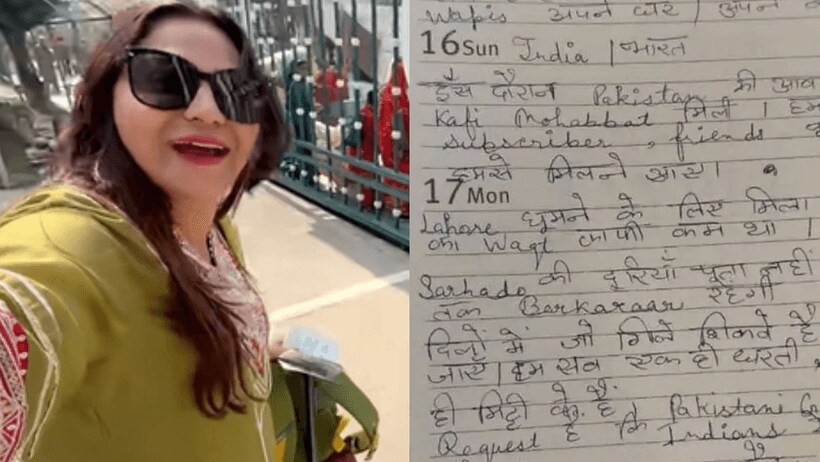 wapis अपने घर | अपने
16 Sun India | भारत
इस दौरान Pakistan की आव
Kafi Mohabbat मिली | हम
subscriber, friends
हमसे मिलने आए |
17 Mon
Lahore घूमने के लिए मिला
का waqt काफी कम था |
Sarhado की दूरियाँ पता नहीं
तक Barkaraar रहेगी
दिलों में जो गिले शिकवे है
जाएँ | हम सब एक ही धरती,
ही मिट्टी के है | Pakistani
Request है कि Indians